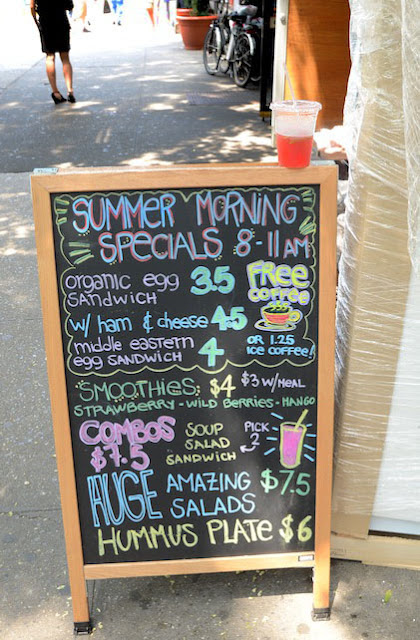 SUMMER MORNING
SPECIALS 8-11AM
organic egg 3.5
SANDWICH
FREE
coffee
w/ ham & cheese 4.5
middle eastern 4
egg SANDWICH
OR 1.25
ICE COFFEE!
SMOOTHIES: $4 $3 W/MEAL
STRAWBERRY - WILD BERRIES - MANGO
COMBOS
$7.5
SOUP
SALAD
SANDWICH
PICK
2
HUGE AMAZING $7.5
SALADS
HUMMUS PLATE $6